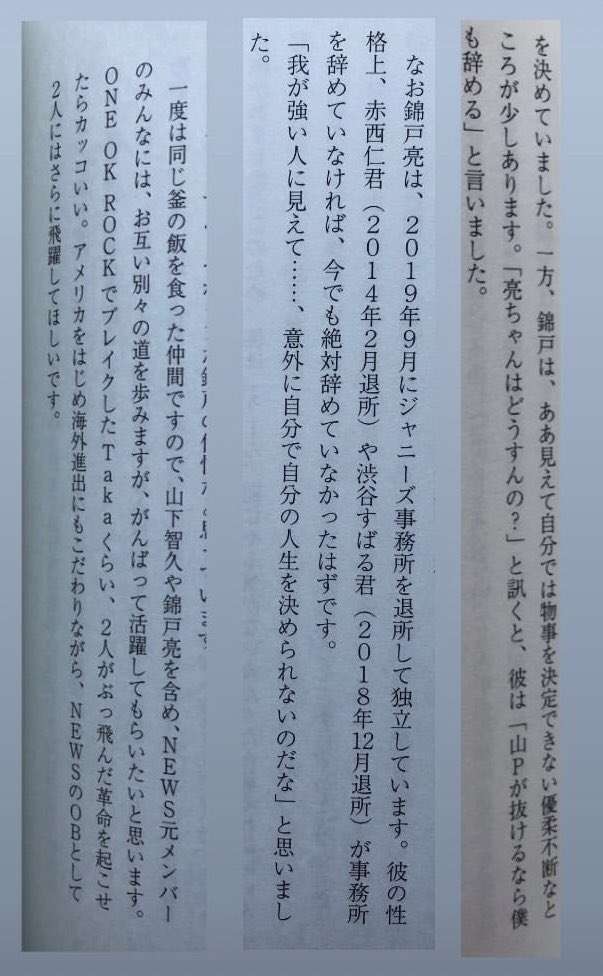 を決めていました。一方、錦戸は、ああ見えて自分では物事を決定できない優柔不断なと
ころが少しあります。「亮ちゃんはどうすんの?」と訊くと、彼は「山Pが抜けるなら僕
も辞める」と言いました。
なお錦戸亮は、2019年9月にジャニーズ事務所を退所して独立しています。彼の性
格上、赤西仁君（2014年2月退所）や渋谷すばる君（2018年12月退所）が事務所
を辞めていなければ、今でも絶対辞めていなかったはずです。
「我が強い人に見えて……、意外に自分で自分の人生を決められないのだな」と思いまし
た。
一度は同じ釜の飯を食った仲間ですので、山下智久や錦戸亮を含め、NEWS元メンバー
のみんなには、お互い別々の道を歩みますが、がんばって活躍してもらいたいと思います。
ONE OK ROCKでブレイクしたTakaくらい、2人がぶっ飛んだ革命を起こせ
たらカッコいい。アメリカをはじめ海外進出にもこだわりながら、NEWSのOBとして
2人にはさらに飛躍してほしいです。